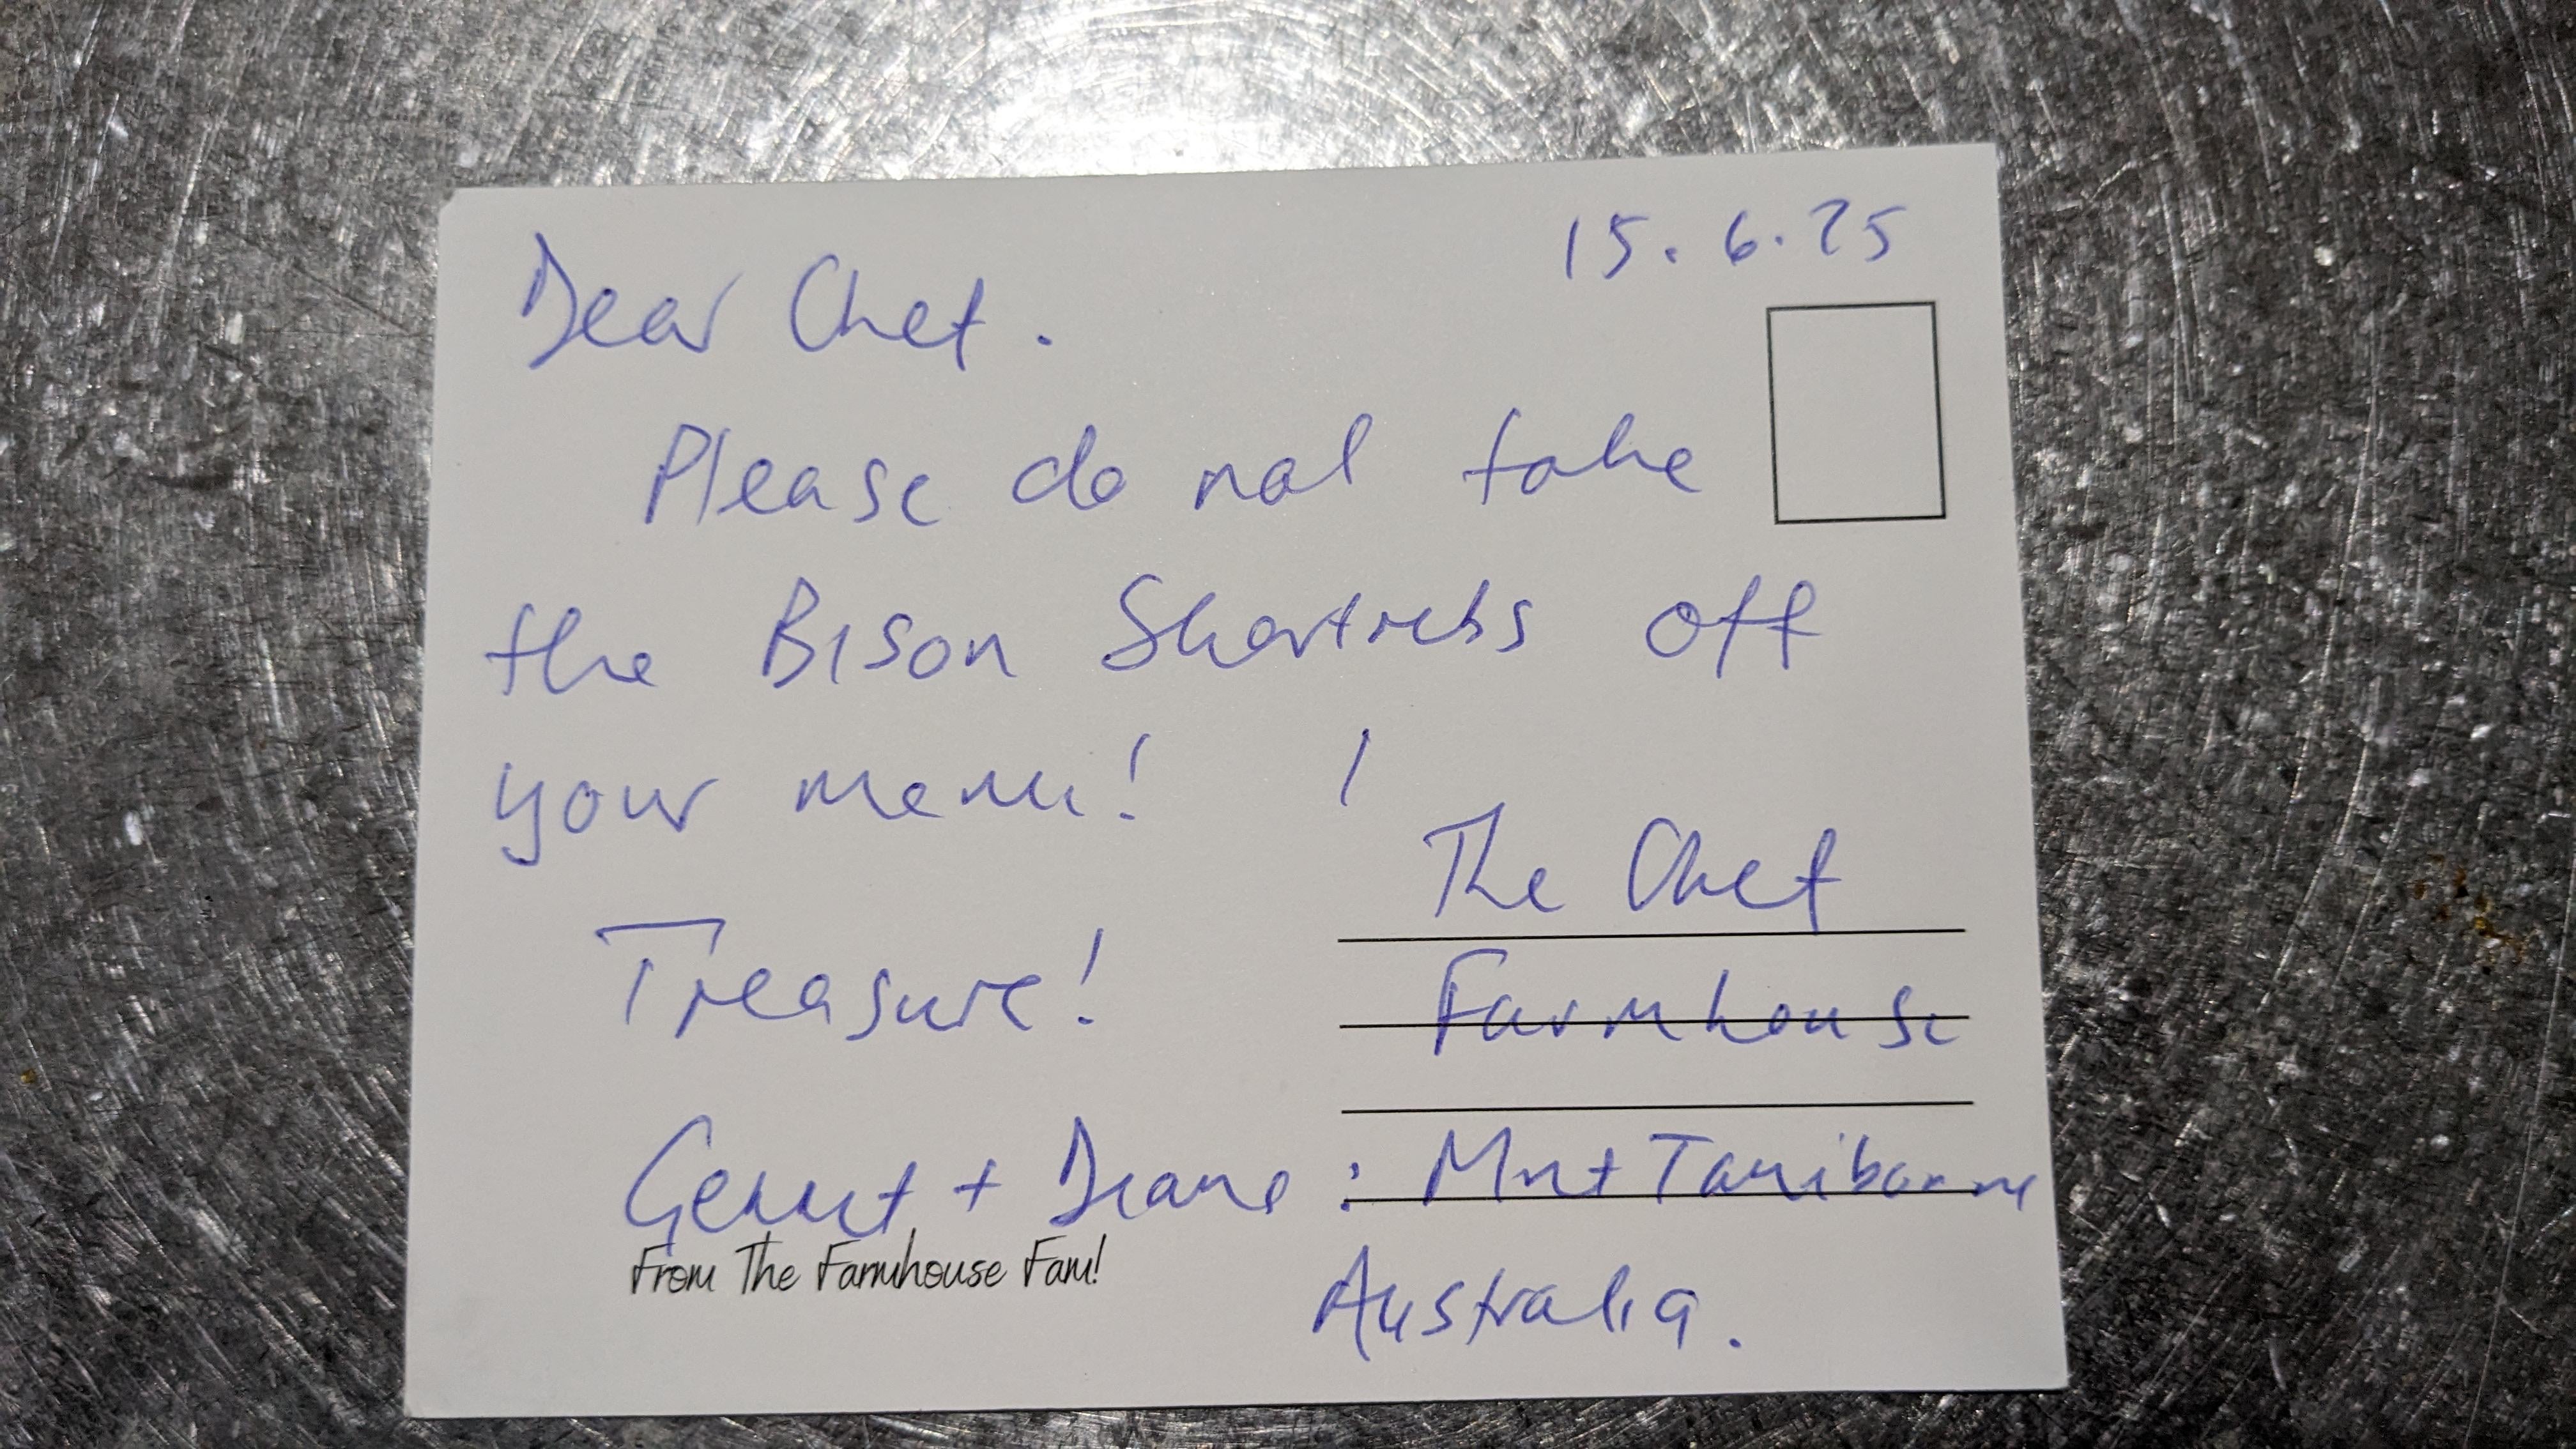 15.6.25
Dear Chef.
Please do not take
the Bison Shortribs off
your menu!
Treasure!
+ Diane :
From The Farmhouse Fam!
The Chef
Farmhouse
Mnt
Australia.